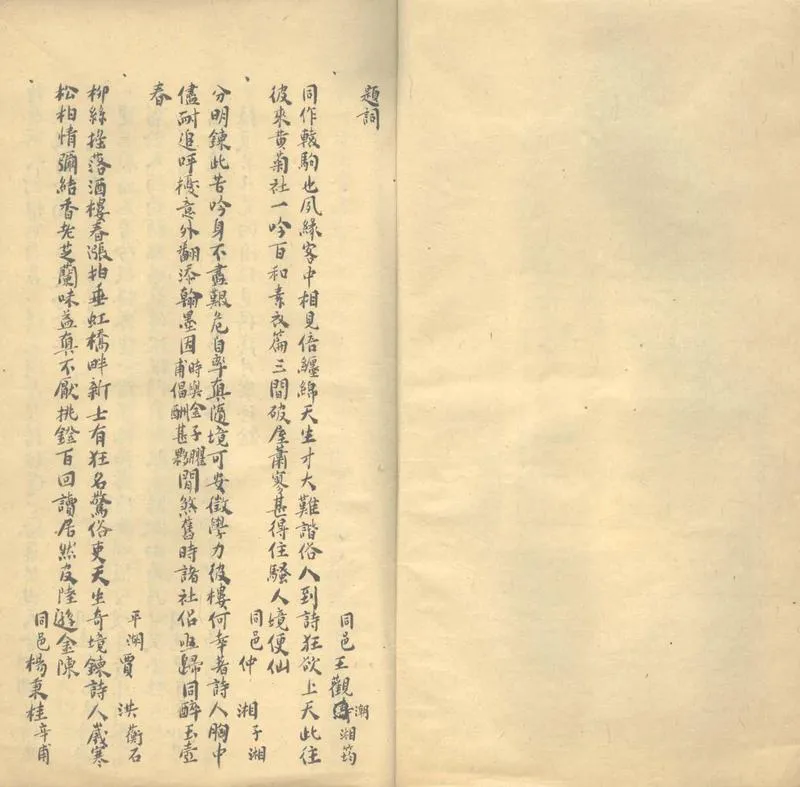 題詞
同邑王觀潮湘筠
同作轅駒也夙緣客中相見倍纏綿天生才大難諧俗人到詩狂欲上天此往
彼來黃菊社一吟百和素衣篇三間破屋蕭寒甚得住騷人境便仙
同邑仲 湘子湘
分明鍊此苦吟身不盡艱危自率真隨境可安徵學力彼樓何幸著詩人胸中
儘耐追呼擾意外翻添翰墨因時與金子臞甫倡酬甚夥閒煞舊時諸社侶歸同醉玉壺
春
平湖賈 洪衡石
柳絲搓落酒樓春漲拍垂虹橋畔新士有狂名驚俗吏天生奇境鍊詩人歲寒
松柏情彌結香老芝蘭味益真不厭挑鐙百回讀居然皮陸遜金陳
同邑楊秉桂辛甫